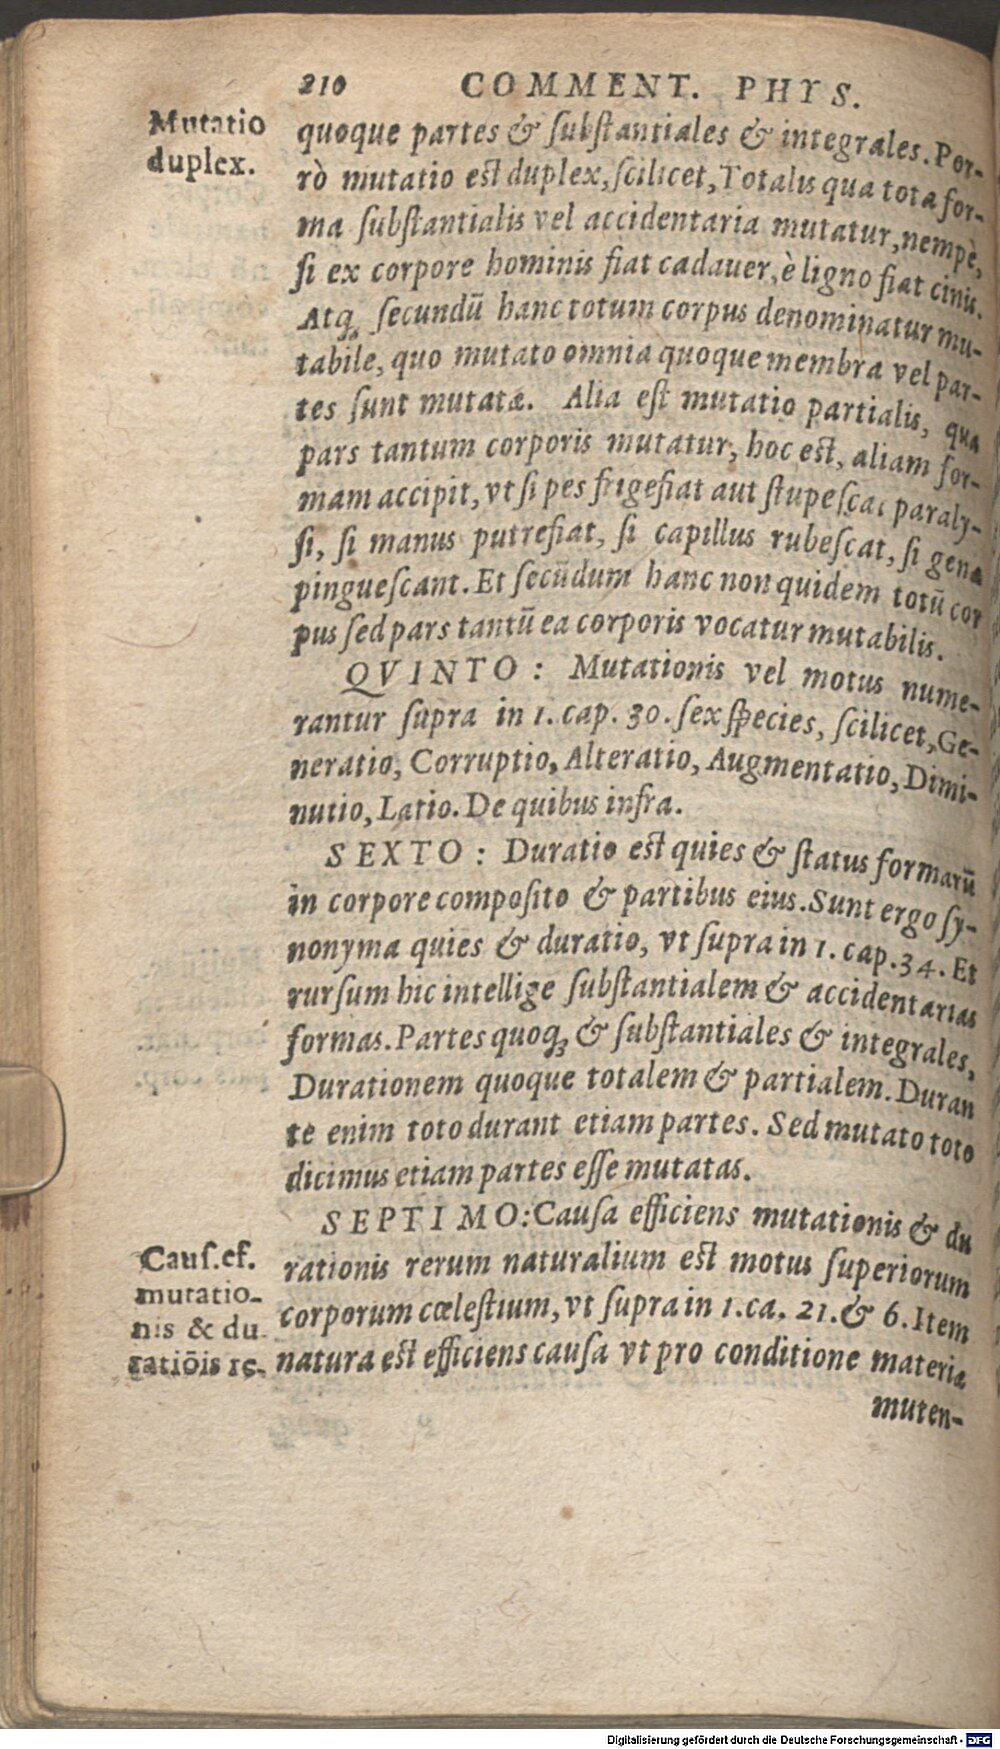 210 COMMENT. PHYS.
Mutatio
duplex.
quoque partes & ſubſtantiales & integrales. Por-
rò mutatio est duplex, ſcilicet, Totalis qua tota for-
ma ſubſtantialis vel accidentaria mutatur, nempè,
ſi ex corpore hominis fiat cadauer, è ligno fiat cinis.
Atq; ſecundũ hanc totum corpus denominatur mu-
tabile, quo mutato omnia quoque membra vel par-
tes ſunt mutatæ. Alia eſt mutatio partialis, qua
pars tantum corporis mutatur, hoc est, aliam for-
mam accipit, vt ſi pes frigefiat aut ſtupeſcat paraly-
ſi, ſi manus putrefiat, ſi capillus rubeſcat, ſi genæ
pingueſcant. Et ſecũdum hanc non quidem totũ cor
pus ſed pars tantũ ea corporis vocatur mutabilis.
QVINTO: Mutationis vel motus nume-
rantur ſupra in 1. cap. 30. ſex ſpecies, ſcilicet, Ge-
neratio, Corruptio, Alteratio, Augmentatio, Dimi-
nutio, Latio. De quibus infra.
SEXTO: Duratio est quies & ſtatus formarũ
in corpore compoſito & partibus eius. Sunt ergo ſy-
nonyma quies & duratio, vt ſupra in 1. cap. 34. Et
rurſum hic intellige ſubſtantialem & accidentarias
formas. Partes quoq; & ſubſtantiales & integrales,
Durationem quoque totalem & partialem. Duran
te enim toto durant etiam partes. Sed mutato toto
dicimus etiam partes eſſe mutatas.
SEPTIMO: Cauſa efficiens mutationis & du
rationis rerum naturalium est motus ſuperiorum
corporum cœleſtium, vt ſupra in 1. ca. 21. & 6. Item
natura est efficiens cauſa vt pro conditione materiæ
Cauſ. ef.
mutatio-
nis & du-
ratiõis re-
muten-
Digitalisierung gefördert durch die Deutsche Forschungsgemeinschaft - DFG